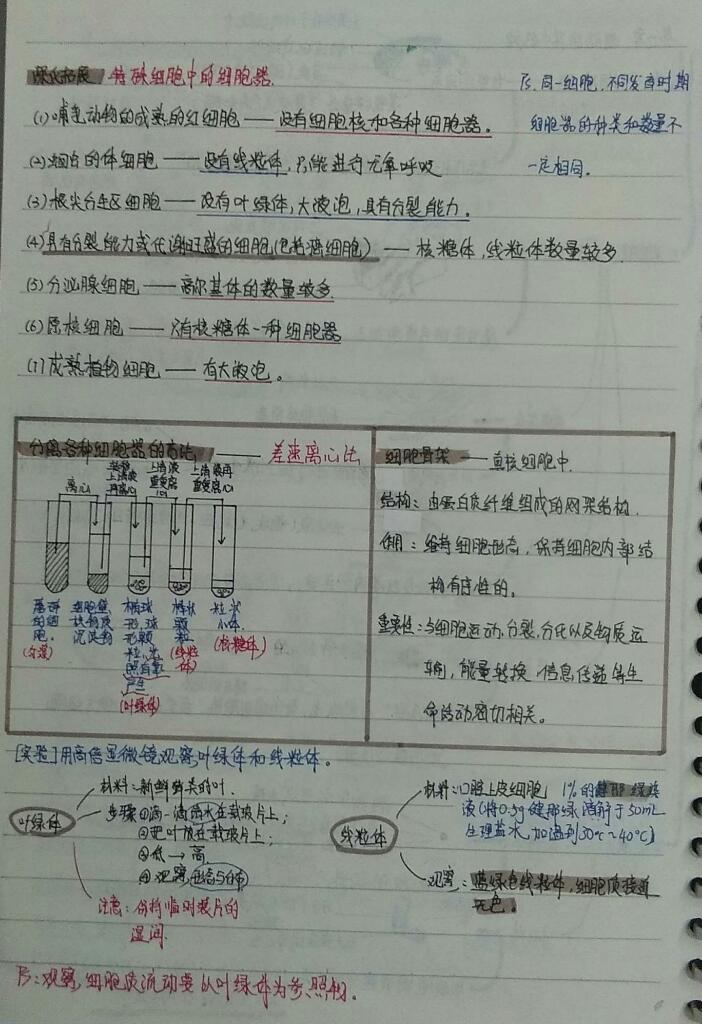 深化拓展 特殊细胞中的细胞器.
Ps.同一细胞,不同发育时期
细胞器的种类和数量不
一定相同。
(1)哺乳动物的成熟的红细胞——没有细胞核和各种细胞器。
(2)蛔虫的体细胞——没有线粒体,只能进行无氧呼吸
(3)根尖分生区细胞——没有叶绿体,大液泡,具有分裂能力.
(4)具有分裂能力或代谢旺盛的细胞(包括癌细胞)——核糖体,线粒体数量较多.
(5)分泌腺细胞——高尔基体的数量较多.
(6)原核细胞——只有核糖体一种细胞器
(7)成熟植物细胞——有大液泡。
分离各种细胞器的方法——差速离心法
离心
上清液
再离心
上清液
重复离
心
上清液再
重复离
心
细胞
核的液
沉淀物
椭球
形,球
形颗
粒,光
照有氧
产生
(叶绿体)
棒状
颗
粒
(线粒
体)
粒状
小体.
(核糖体)
细胞骨架——真核细胞中.
结构:由蛋白质纤维组成的网架结构.
作用:维持细胞形态,保持细胞内部结
构有序性的.
重要性:与细胞运动,分裂,分化以及物质运
输,能量转换,信息传递等生
命活动密切相关。
[实验]用高倍显微镜观察叶绿体和线粒体。
叶绿体
材料:新鲜藓类的叶.
步骤①滴一滴清水在载玻片上;
②把叶放在载玻片上;
③低→高.
④观察形态与分布
注意:保持临时装片的
湿润.
线粒体
材料:口腔上皮细胞 1%的健那绿染
液(将0.5g健那绿溶解于50mL
生理盐水,加温到30℃~40℃)
观察:蓝绿色线粒体,细胞质接近
无色。
Ps:观察细胞质流动要以叶绿体为参照物。